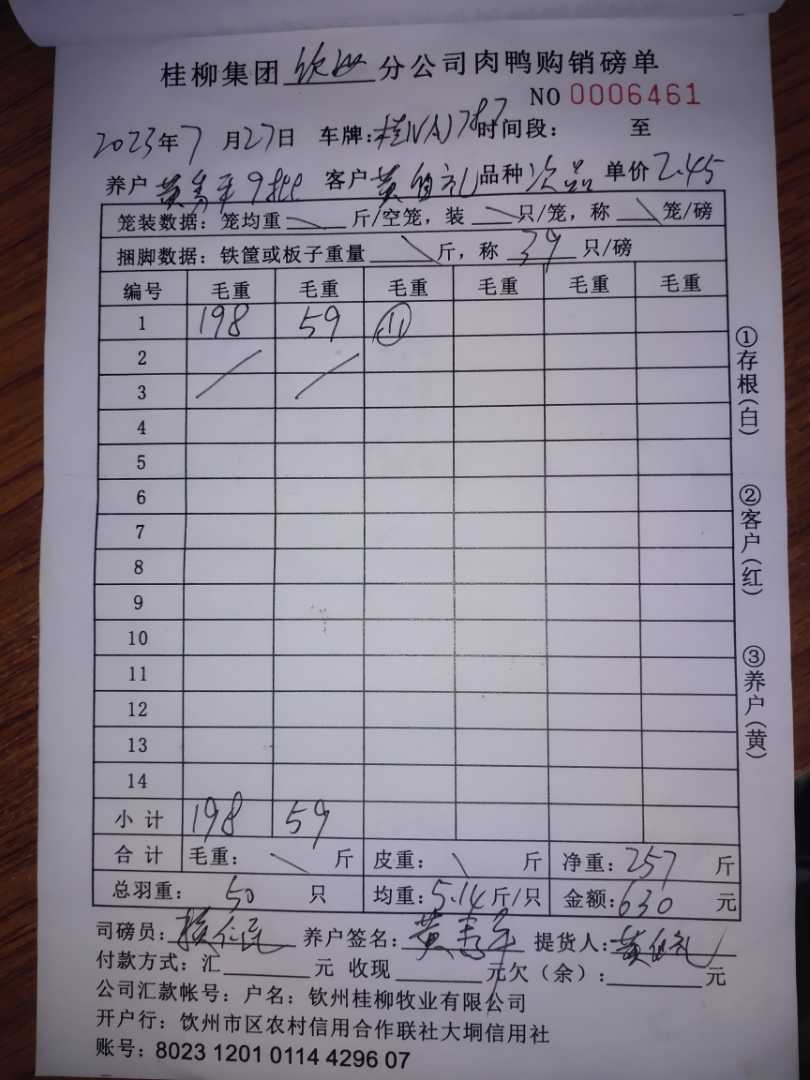 桂柳集团 钦州 分公司肉鸭购销磅单
NO 0006461
2023年7月27日 车牌:桂NAJ787 时间段: 至
养户 黄寿平9批 客户 黄伯礼 品种 次品 单价 2.45
笼装数据: 笼均重 \ 斤/空笼, 装 \ 只/笼, 称 \ 笼/磅
捆脚数据: 铁筐或板子重量 \ 斤, 称 39 只/磅
编号 毛重 毛重 毛重 毛重 毛重 毛重
1 198 59 ⑪
2
3
4
5
6
7
8
9
10
11
12
13
14
小计 198 59
合计 毛重: \ 斤 皮重: \ 斤 净重: 257 斤
总羽重: 50 只 均重: 5.14 斤/只 金额: 630 元
司磅员: 养户签名: 黄寿平 提货人: 黄伯礼
付款方式: 汇 元 收现 元欠(余): 元
公司汇款帐号: 户名: 钦州桂柳牧业有限公司
开户行: 钦州市区农村信用合作联社大垌信用社
账号: 8023 1201 0114 4296 07
①存根(白)
②客户(红)
③养户(黄)